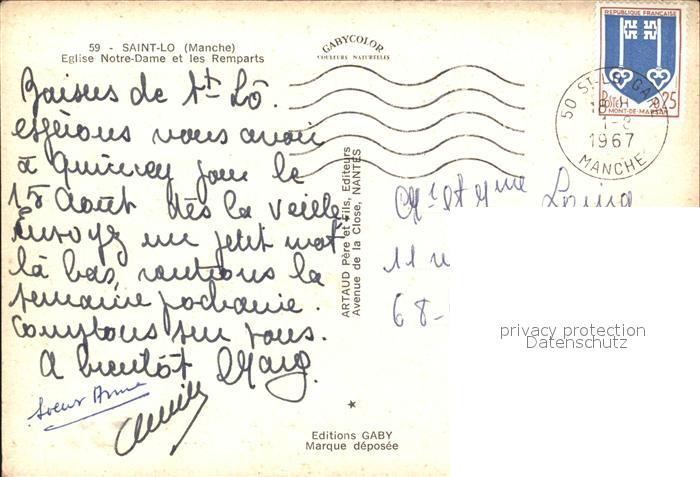 59 - SAINT-LO (Manche)
Eglise Notre-Dame et les Remparts
GABYCOLOR
COULEURS NATURELLES
REPUBLIQUE FRANÇAISE
POSTES 0,25
MONT-DE-MARSAN
50 ST-LO GARE
18 H
1-8
1967
MANCHE
Baisers de St Lô.
espérons vous avoir
à Quincey pour le
15 Août dès la veille.
Envoyez un petit mot
là bas, rentrons la
semaine prochaine.
Comptons sur vous.
A bientôt Marg.
Soeur Anne
ARTAUD Père et Fils, Editeurs
Avenue de la Close, NANTES
Mr et Mme Louis
11
68-
privacy protection
Datenschutz
Editions GABY
Marque déposée